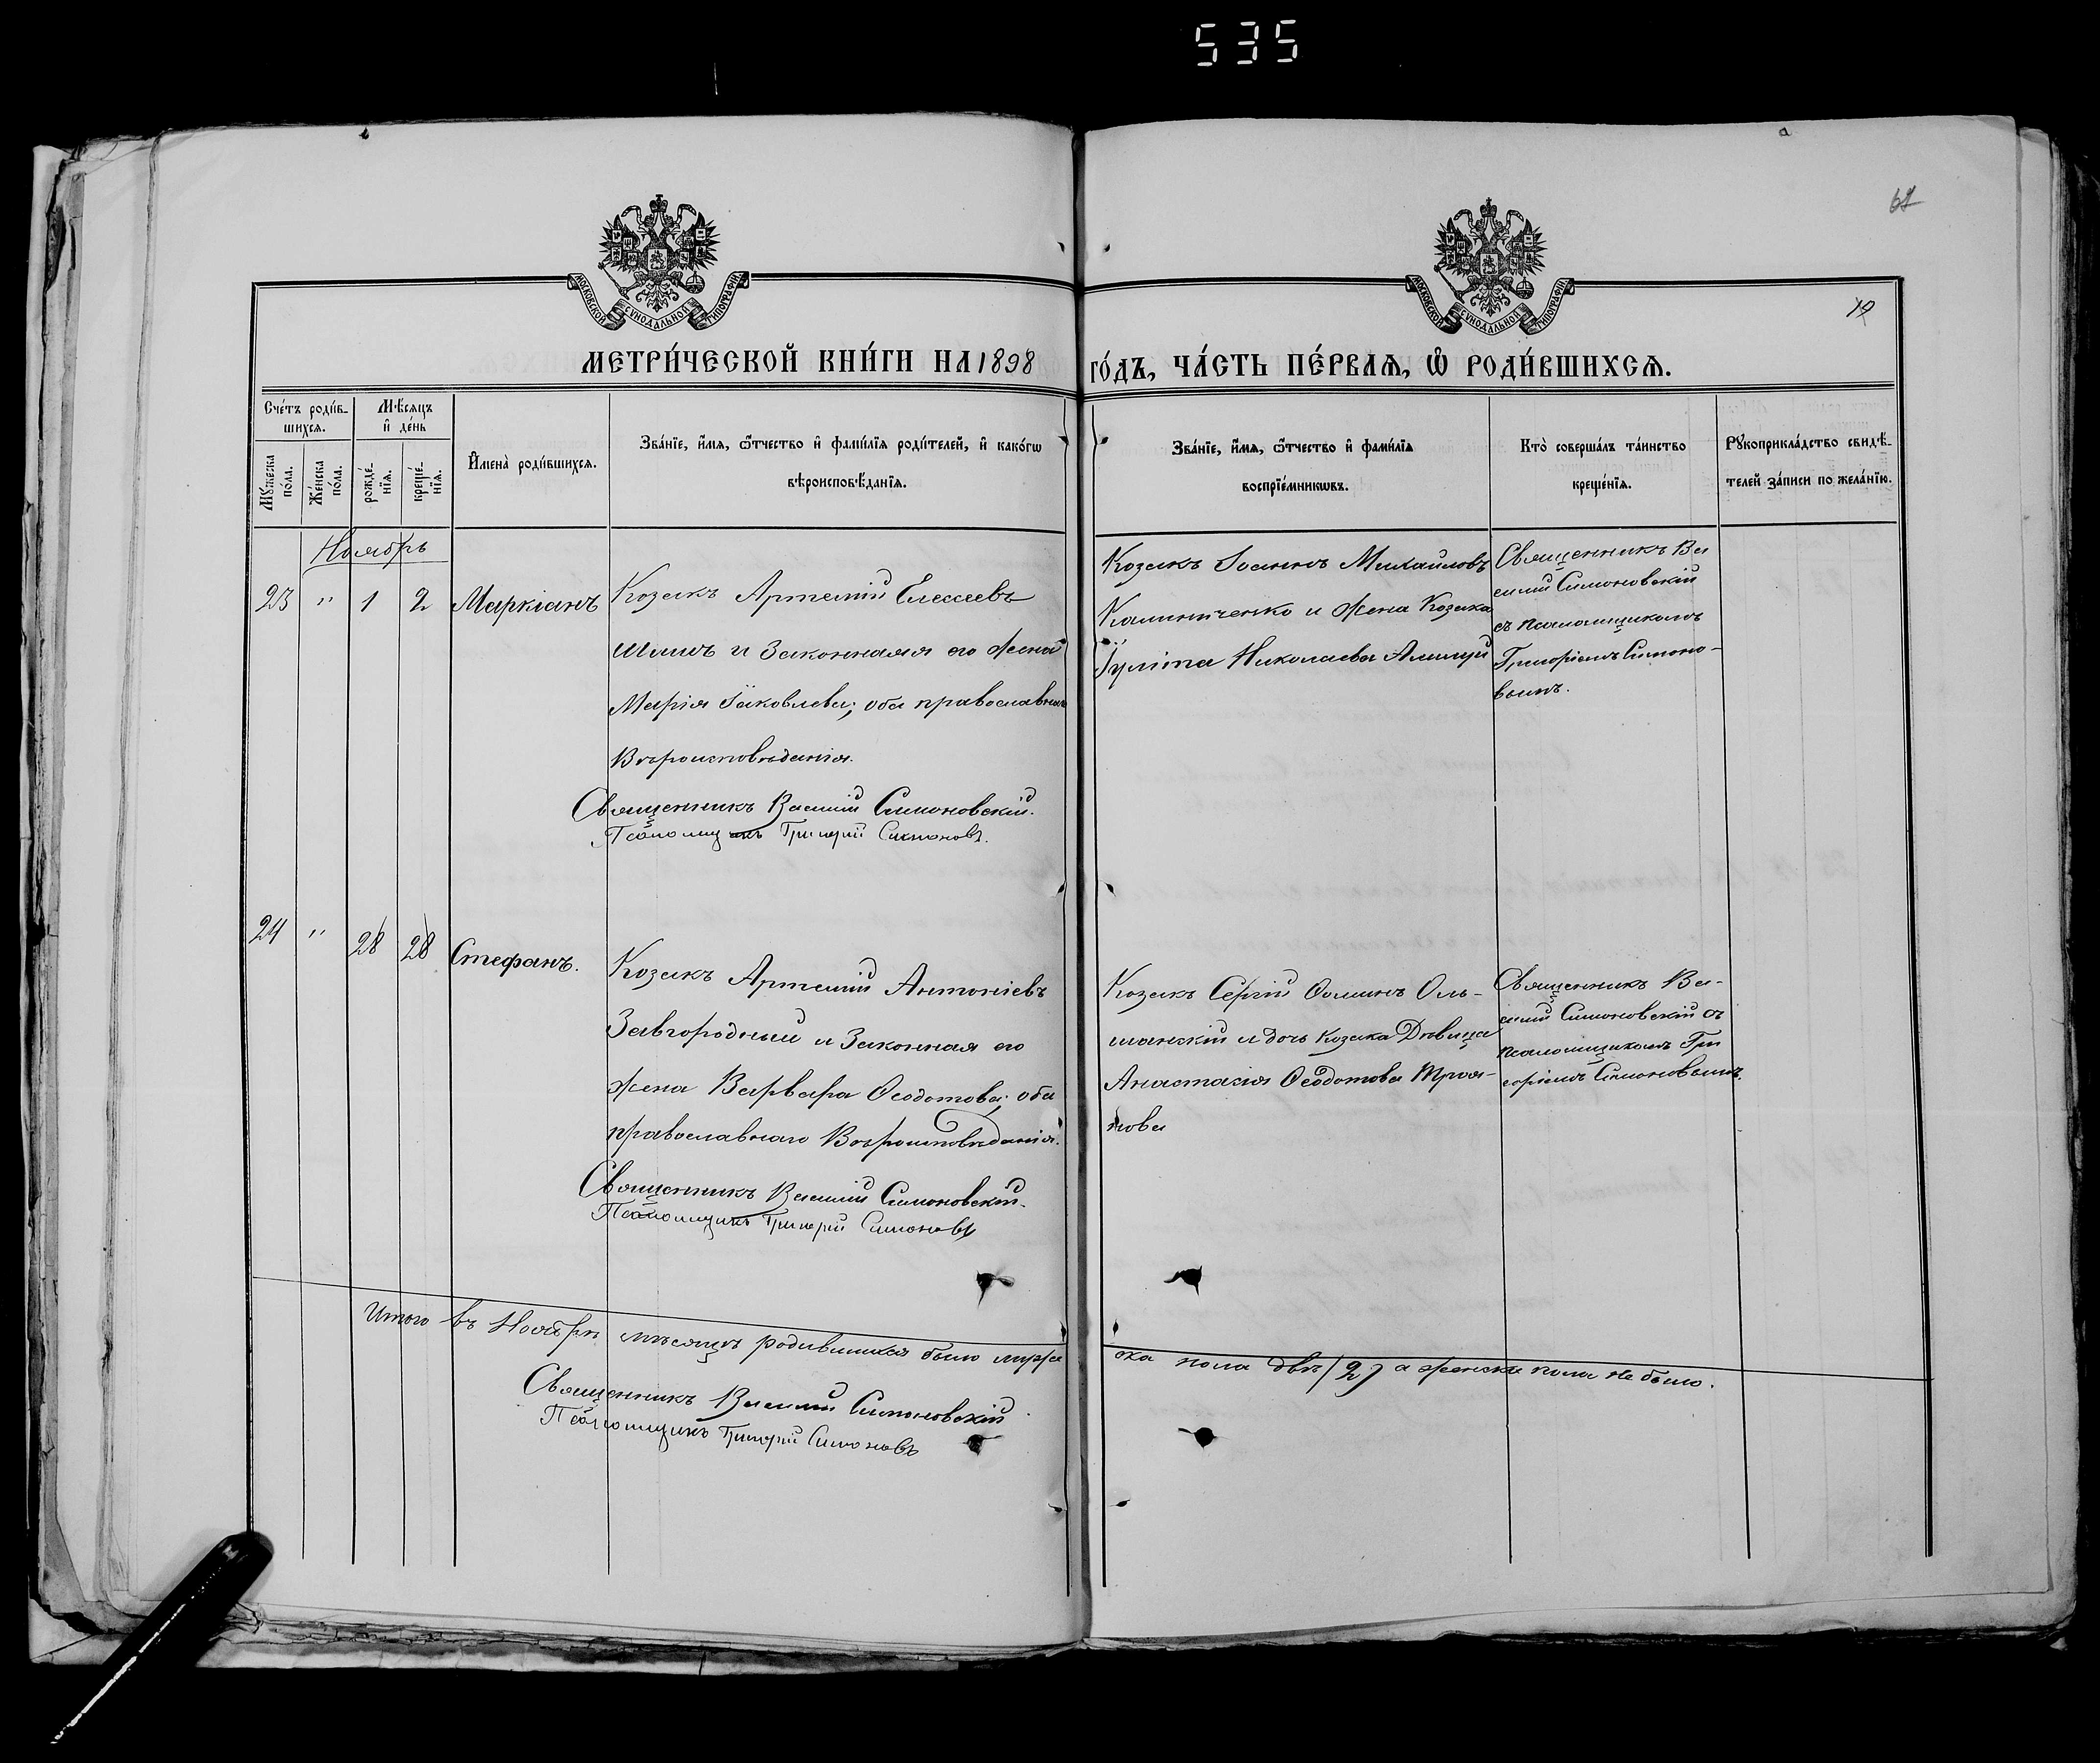 535
67
19
МОСКОВСКОЙ СУНОДАЛЬНОЙ ТИПОГРАФІИ
МОСКОВСКОЙ СУНОДАЛЬНОЙ ТИПОГРАФІИ
МЕТРИ́ЧЕСКОЙ КНИ́ГИ НА 1898 ГО́ДЪ, ЧА́СТЬ ПЕ́РВАѦ, Ѡ҆ РОДИ́ВШИХСѦ.
Сче́тъ роди́в-
шихсѧ.
Мѣ́сѧцъ
и҆ де́нь
Мꙋ́жеска
по́ла.
Же́нска
по́ла.
рожде́-
нїѧ.
креще́-
нїѧ.
И҆мена̀ роди́вшихсѧ.
Зва́нїе, и҆́мѧ, ѻ҆́тчество и҆ фами́лїѧ роди́телей, и҆ како́гѡ
вѣроисповѣ́данїѧ.
Зва́нїе, и҆́мѧ, ѻ҆́тчество и҆ фами́лїѧ
воспрїе́мникѡвъ.
Кто̀ соверша́лъ та́инство
креще́нїѧ.
Рꙋкоприкла́дство свидѣ́-
телей за́писи по жела́нїю.
Ноябрь
23 " 1 2 Маркіанъ
Козакъ Артемій Елесеевъ
и Законная его жена
Марія Іаковлева; оба православнаго
Вѣроисповѣданія.
Священникъ Василій Симоновскій.
Псаломщикъ Григорій Симоновъ.
Козакъ Іоаннъ Михаиловъ
Калиниченко и жена Козака
Іулита Николаева
Священникъ Ва
силій Симоновскій
съ псаломщикомъ
Григоріемъ Симоно-
вымъ.
24 " 28 28 Стефанъ.
Козакъ Артемій Антоніевъ
Завгородный и Законная его
жена Варвара Ѳеодотова; оба
православнаго Вѣроисповѣданія.
Священникъ Василій Симоновскій.
Псаломщикъ Григорій Симоновъ
Козакъ Сергій Ѳоминъ Оль-
шанскій и дочь Козака Дѣвица
Анастасія Ѳеодотова Троя-
нова
Священникъ Ва-
силій Симоновскій съ
псаломщикомъ Гри
горіемъ Симоновымъ.
Итого въ Ноябрѣ мѣсяцѣ родившихся было муже
ска пола два (2) а женска пола не было.
Священникъ Василій Симоновскій
Псаломщикъ Григорій Симоновъ